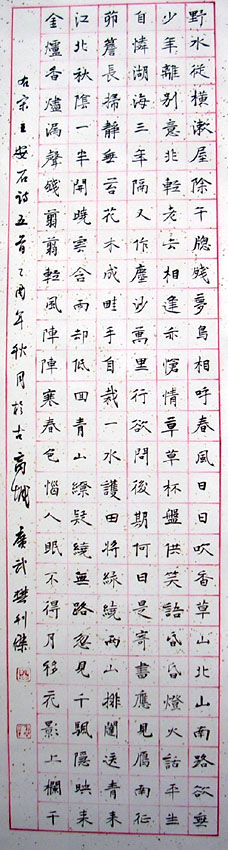 野水從橫漱屋除午牕殘夢鳥相呼春風日日吹香草山北山南路欲無
少年離別意非輕老去相逢亦愴情草草杯盤供笑語昏昏燈火話平生
自憐湖海三年隔又作塵沙萬里行欲問後期何日是寄書應見雁南征
茆簷長掃靜無苔花木成畦手自栽一水護田將綠繞兩山排闥送青來
江北秋陰一半開曉雲含雨却低回青山繚疑繞無路忽見千颿隱映來
金爐香燼漏聲殘翦翦輕風陣陣寒春色惱人眠不得月移花影上欄干
右宋王安石詩五首乙酉年秋月於古商城 廣武